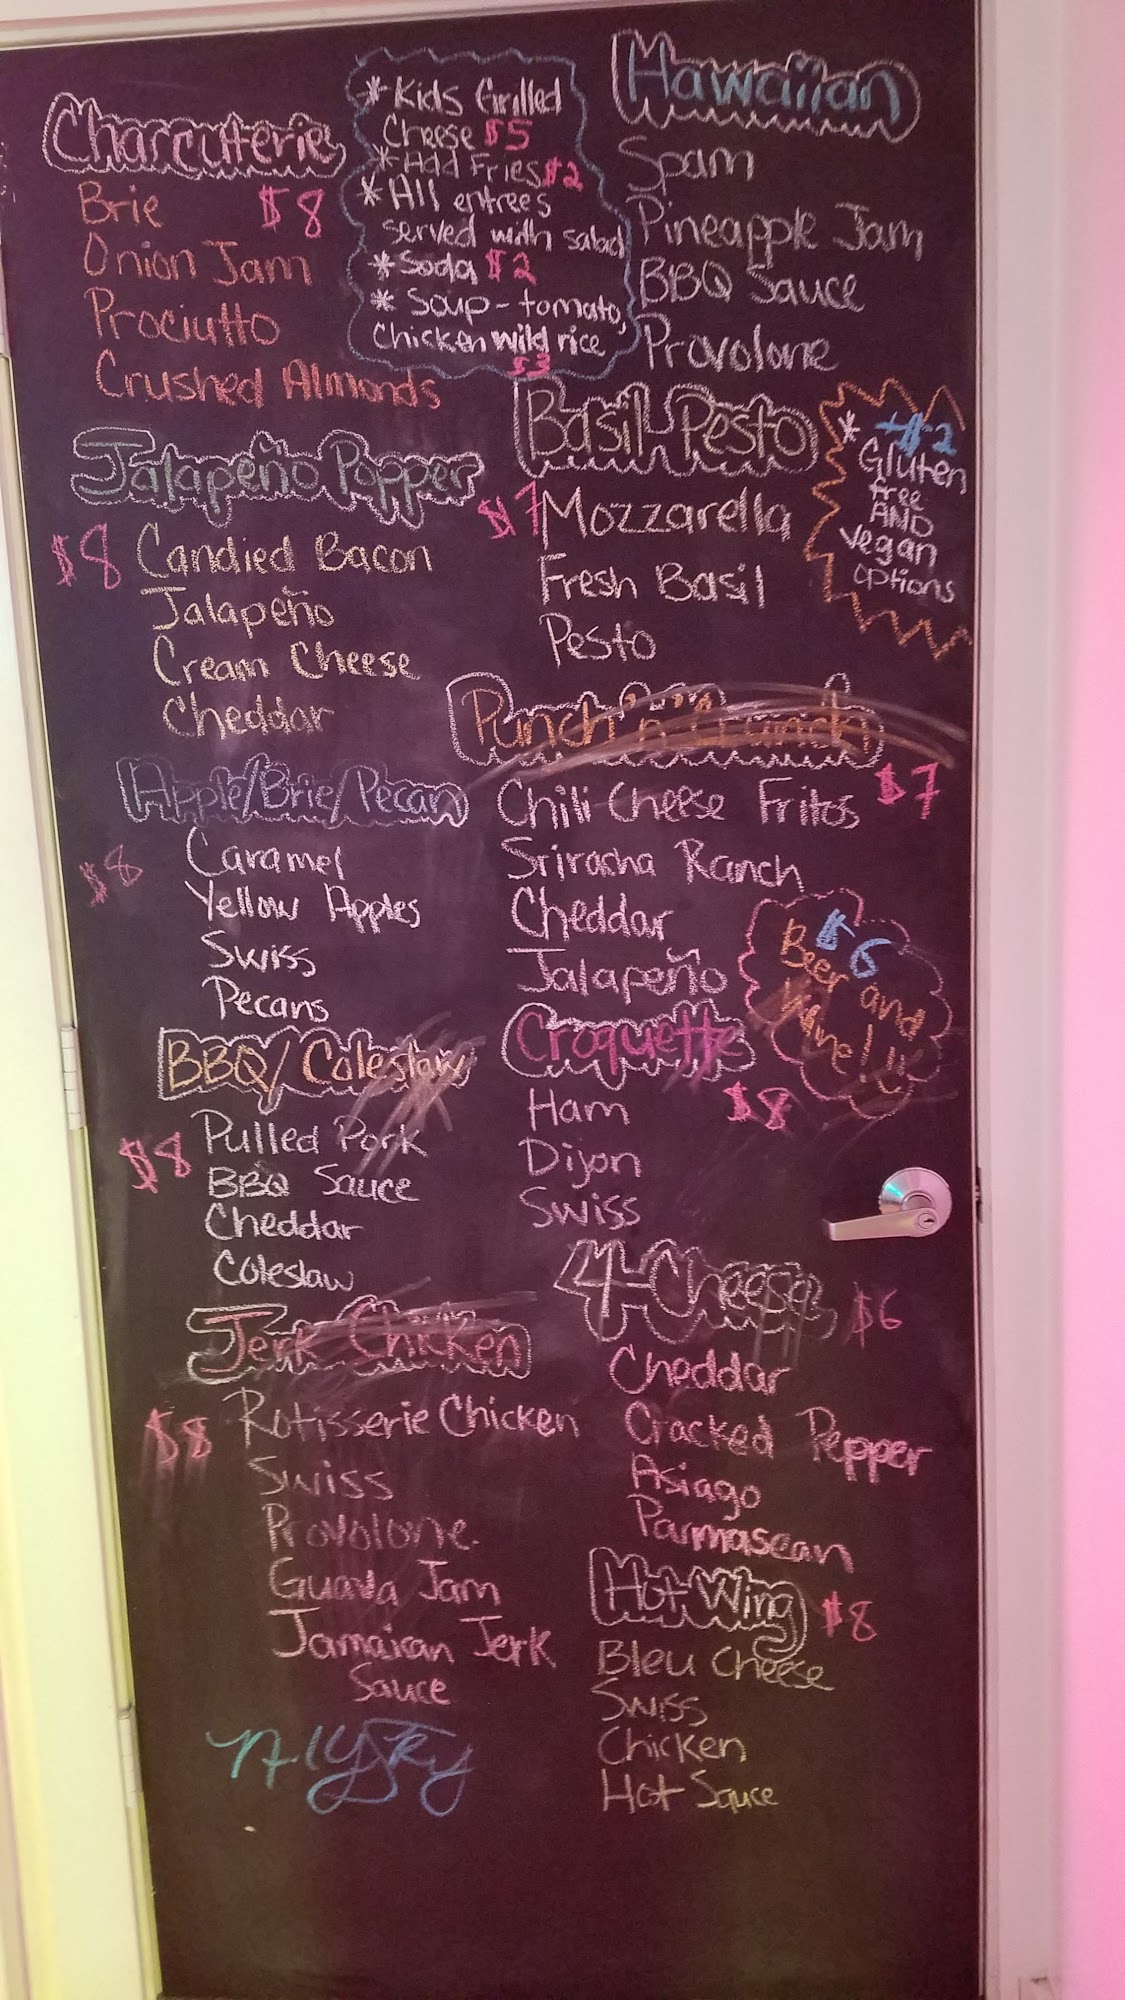 Charcuterie
Brie $8
Onion Jam
Prociutto
Crushed Almonds
* Kids Grilled
Cheese $5
* Add Fries $2
* All entrees
served with salad
* Soda $2
* Soup - tomato,
Chicken wild rice
$3
Hawaiian
Spam
Pineapple Jam
BBQ Sauce
Provolone
Jalapeño Popper
$8 Candied Bacon
Jalapeño
Cream Cheese
Cheddar
Basil-Pesto
$7 Mozzarella
Fresh Basil
Pesto
+$2
* Gluten
free
AND
vegan
options
Apple/Brie/Pecan
$8 Caramel
Yellow Apples
Swiss
Pecans
Punch 'n' Crunch
Chili Cheese Fritos $7
Sriracha Ranch
Cheddar
Jalapeño
$6
Beer and
Wine!!
BBQ/Coleslaw
$8 Pulled Pork
BBQ Sauce
Cheddar
Coleslaw
Croquette
Ham $8
Dijon
Swiss
Jerk Chicken
$8 Rotisserie Chicken
Swiss
Provolone
Guava Jam
Jamaican Jerk
Sauce
4-Cheese $6
Cheddar
Cracked Pepper
Asiago
Parmasean
Hot Wing $8
Bleu Cheese
Swiss
Chicken
Hot Sauce